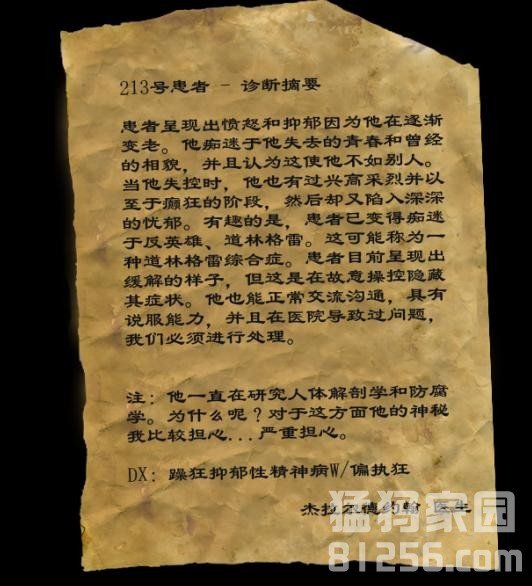 213号患者 - 诊断摘要
患者呈现出愤怒和抑郁因为他在逐渐
变老。他痴迷于他失去的青春和曾经
的相貌，并且认为这使他不如别人。
当他失控时，他也有过兴高采烈并以
至于癫狂的阶段，然后却又陷入深深
的忧郁。有趣的是，患者已变得痴迷
于反英雄、道林格雷。这可能称为一
种道林格雷综合症。患者目前呈现出
缓解的样子，但这是在故意操控隐蔽
其症状。他也能正常交流沟通，具有
说服能力，并且在医院导致过问题，
我们必须进行处理。
注：他一直在研究人体解剖学和防腐
学。为什么呢？对于这方面他的神秘
我比较担心...严重担心。
DX: 躁狂抑郁性精神病W/偏执狂
杰拉尔德约翰 医生
猛犸家园
81256.com